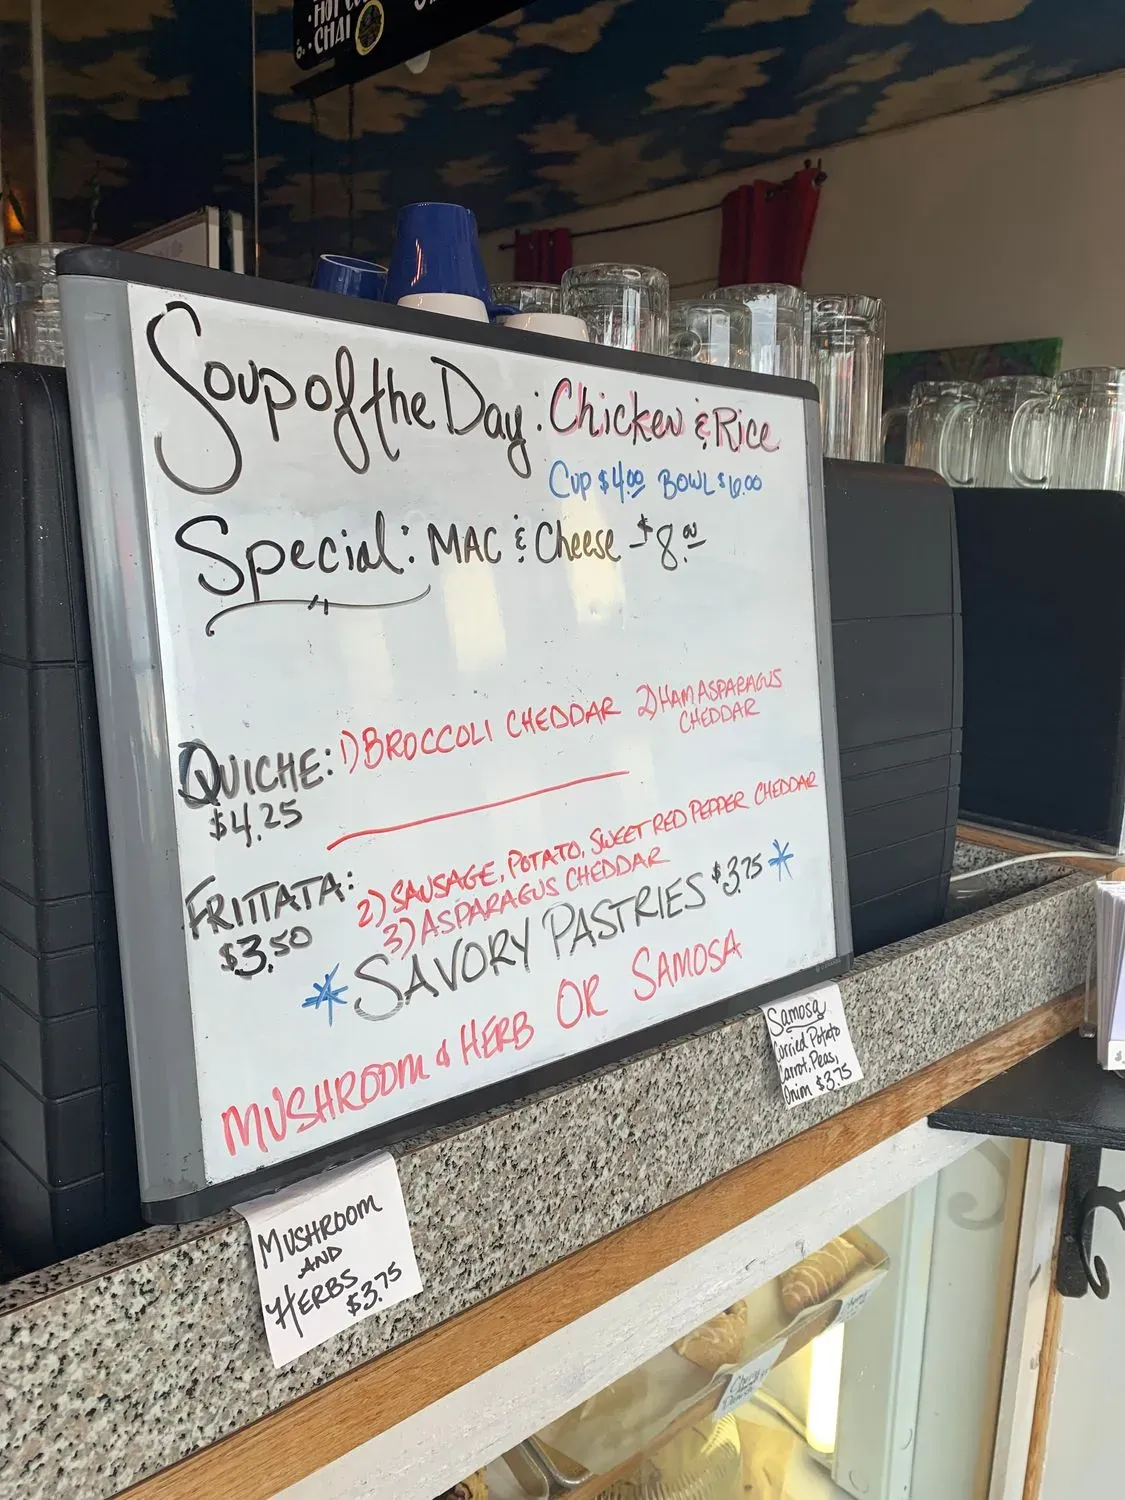 HOT
CHAI
Soup of the Day: Chicken & Rice
Cup $4.00 BOWL $6.00
Special: MAC & Cheese $8.00
QUICHE: 1) BROCCOLI CHEDDAR 2) HAM ASPARAGUS
CHEDDAR
$4.25
FRITTATA: 2) SAUSAGE, POTATO, SWEET RED PEPPER CHEDDAR
$3.50 3) ASPARAGUS CHEDDAR
* SAVORY PASTRIES $3.75 *
MUSHROOM & HERB OR SAMOSA
Samosa
Curried Potato
Carrot, Peas,
Onion $3.75
MUSHROOM
AND
HERBS
$3.75